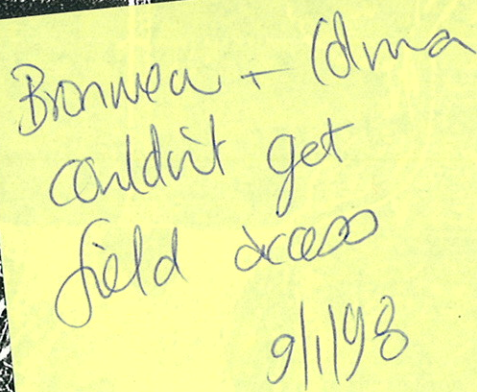 Bronwen + Colma
couldn't get
field access
9/1/98